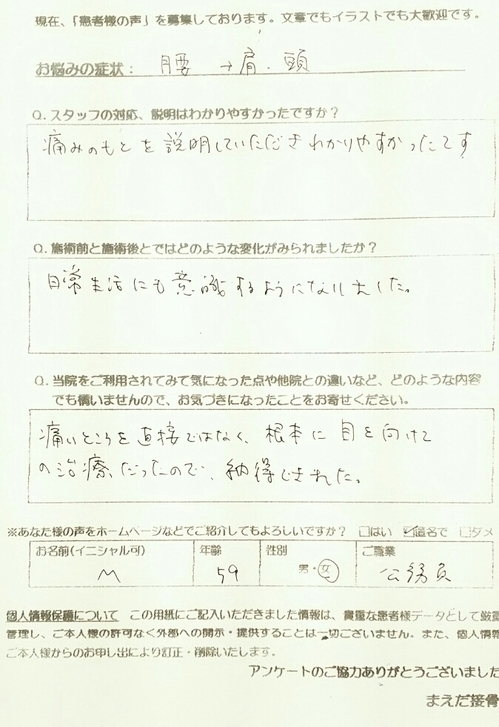 現在、「患者様の声」を募集しております。文章でもイラストでも大歓迎です。
お悩みの症状： 腰 → 肩、頭
Q. スタッフの対応、説明はわかりやすかったですか？
痛みのもとを説明していただきわかりやすかったです
Q. 施術前と施術後とではどのような変化がみられましたか？
日常生活にも意識するようになりました。
Q. 当院をご利用されてみて気になった点や他院との違いなど、どのような内容
でも構いませんので、お気づきになったことをお寄せください。
痛いところを直接ではなく、根本に目を向けて
の治療だったので、納得できた。
※あなた様の声をホームページなどでご紹介してもよろしいですか？ □はい ☑匿名で □ダメ
お名前(イニシャル可) 年齢 性別 ご職業
M 59 男・女 公務員
個人情報保護について この用紙にご記入いただきました情報は、貴重な患者様データとして厳重
管理し、ご本人様の許可なく外部への開示・提供することは一切ございません。また、個人情報
ご本人様からのお申し出により訂正・削除いたします。
アンケートのご協力ありがとうございました
まえだ接骨